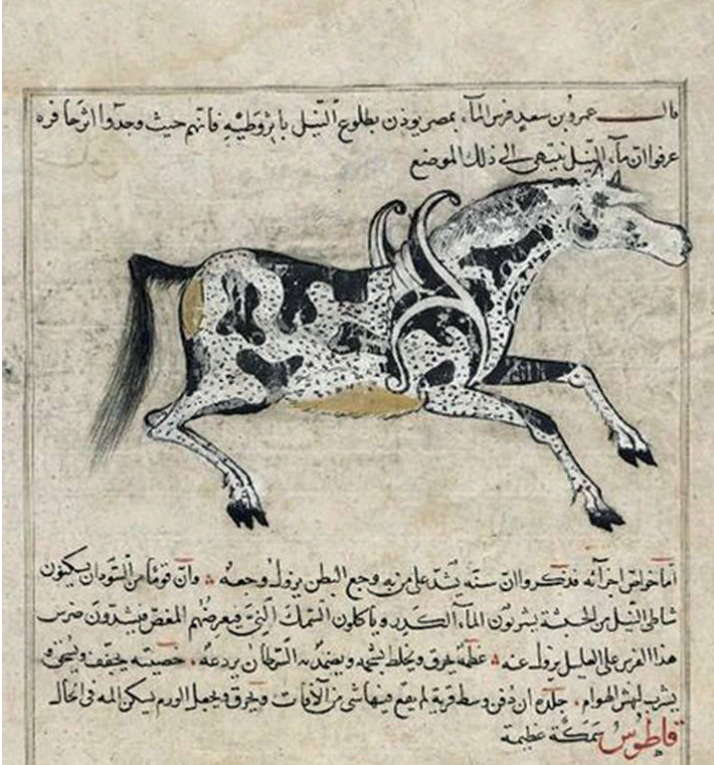 قال عمرو بن سعيد فرس المآء بمصر يوذن بطلوع النيل باثر وطيه فانهم حيث وجدوا اثر حافره
عرفوا ان مآء النيل ينتهى الى ذلك الموضع
اما خواص اجزآئه فذكروا ان سنه يشد على من به وجع البطن يزول وجعه وان قوما من السودان يسكنون
شاطى النيل من الحبشة يشربون المآء الكدر وياكلون السمك النى فيعرضهم المغص فيشدون ضرس
هذا الفرس على العليل يزول عنه عظمه يحرق ويخلط بشحمه ويضمد به السرطان يردعه خصيته يجفف ويسحق و
يشرب لنهش الهوام جلده ان دفن وسط قرية لم يقع فيها شى من الآفات ويحرق ويجعل الورم يسكن المه فى الحال
قاطوس سمكة عظيمة